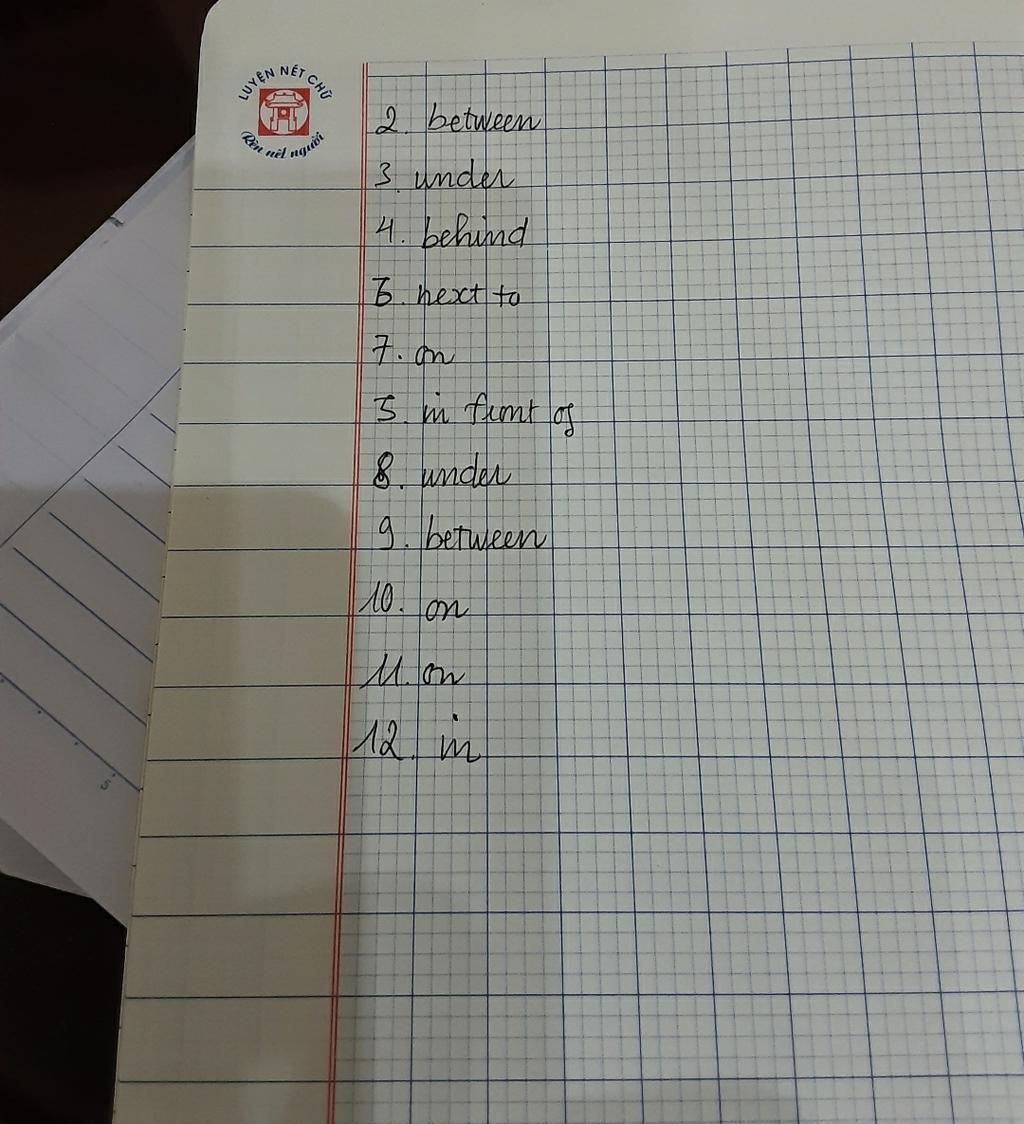 LUYỆN NÉT CHỮ
Rèn nết người
2. between
3. under
4. behind
6. next to
7. on
5. in front of
8. under
9. between
10. on
11. on
12. in
5